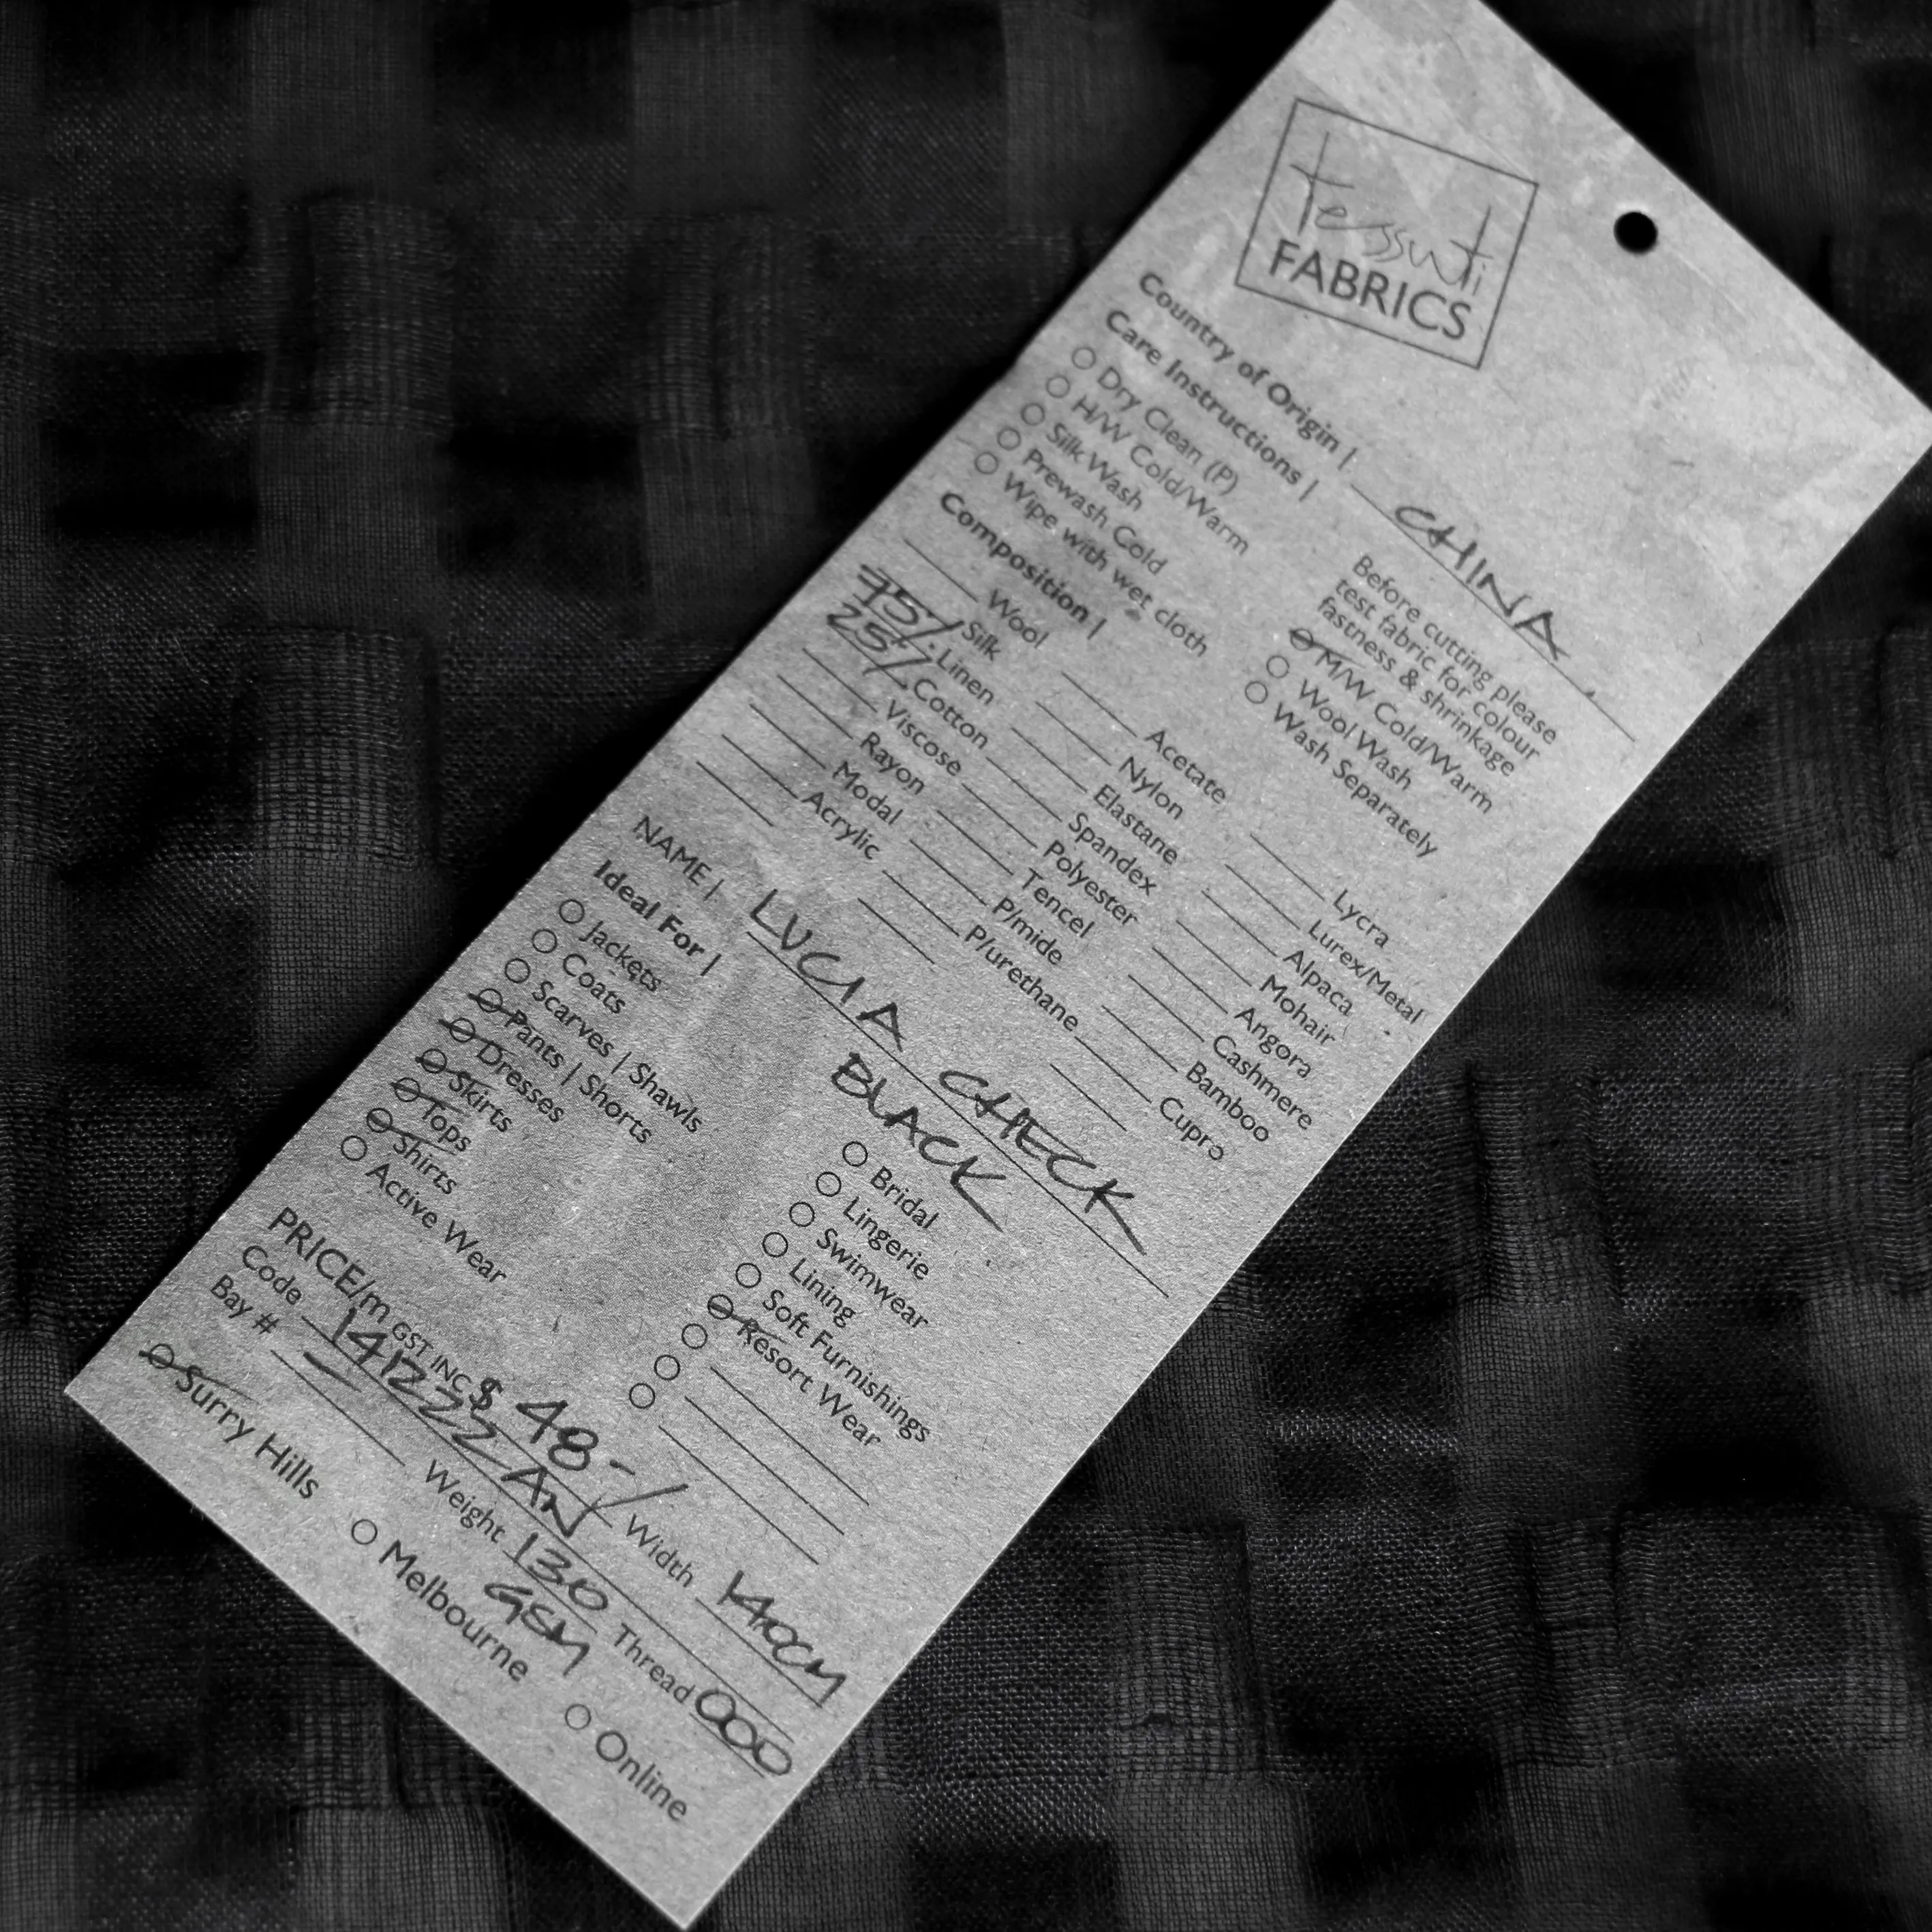 tessuti
FABRICS
Country of Origin | CHINA
Care Instructions |
Dry Clean (P)
H/W Cold/Warm
Silk Wash
Prewash Cold
Wipe with wet cloth
Before cutting please
test fabric for colour
fastness & shrinkage
M/W Cold/Warm
Wool Wash
Wash Separately
Composition |
Wool
Silk
75% Linen
25% Cotton
Viscose
Rayon
Modal
Acrylic
Acetate
Nylon
Elastane
Spandex
Polyester
Tencel
P/mide
P/urethane
Lycra
Lurex/Metal
Alpaca
Mohair
Angora
Cashmere
Bamboo
Cupro
NAME | LUCIA CHECK
BLACK
Ideal For |
Jackets
Coats
Scarves | Shawls
Pants | Shorts
Dresses
Skirts
Tops
Shirts
Active Wear
Bridal
Lingerie
Swimwear
Lining
Soft Furnishings
Resort Wear
PRICE/m GST INC $ 48-/
Code 141222 AN Width 140CM
Bay # — Weight 130 GSM Thread 000
Surry Hills Melbourne Online